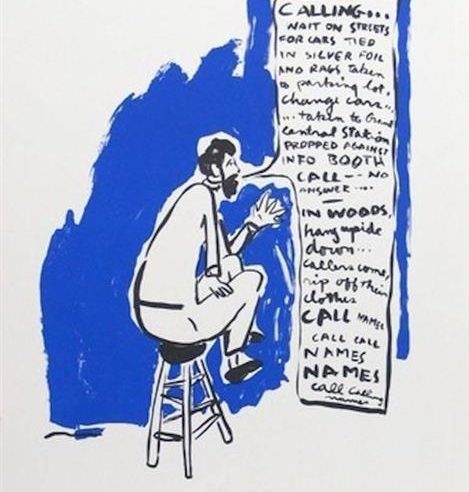 CALLING...
WAIT ON STREETS
FOR CARS TIED
IN SILVER FOIL
AND RAGS taken
to parking lot.
Change cars..
... taken to Grand
Central Station
PROPPED AGAINST
INFO BOOTH
CALL -- NO
ANSWER ...
IN WOODS,
hang upside
down...
callers come,
rip off their
clothes
CALL NAMES
CALL CALL
NAMES
NAMES
call calling
names